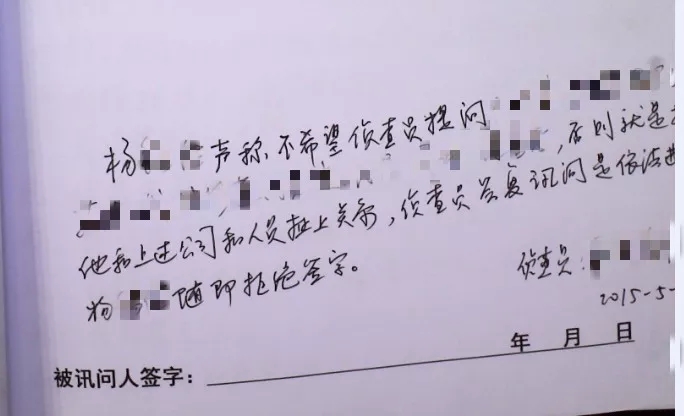 杨 声称,不希望侦查员提问
,否则就是
他和上述公司和人员扯上关系,侦查员答复讯问是依法进
杨 随即拒绝签字。
侦查员:
2015-5-
年 月 日
被讯问人签字: